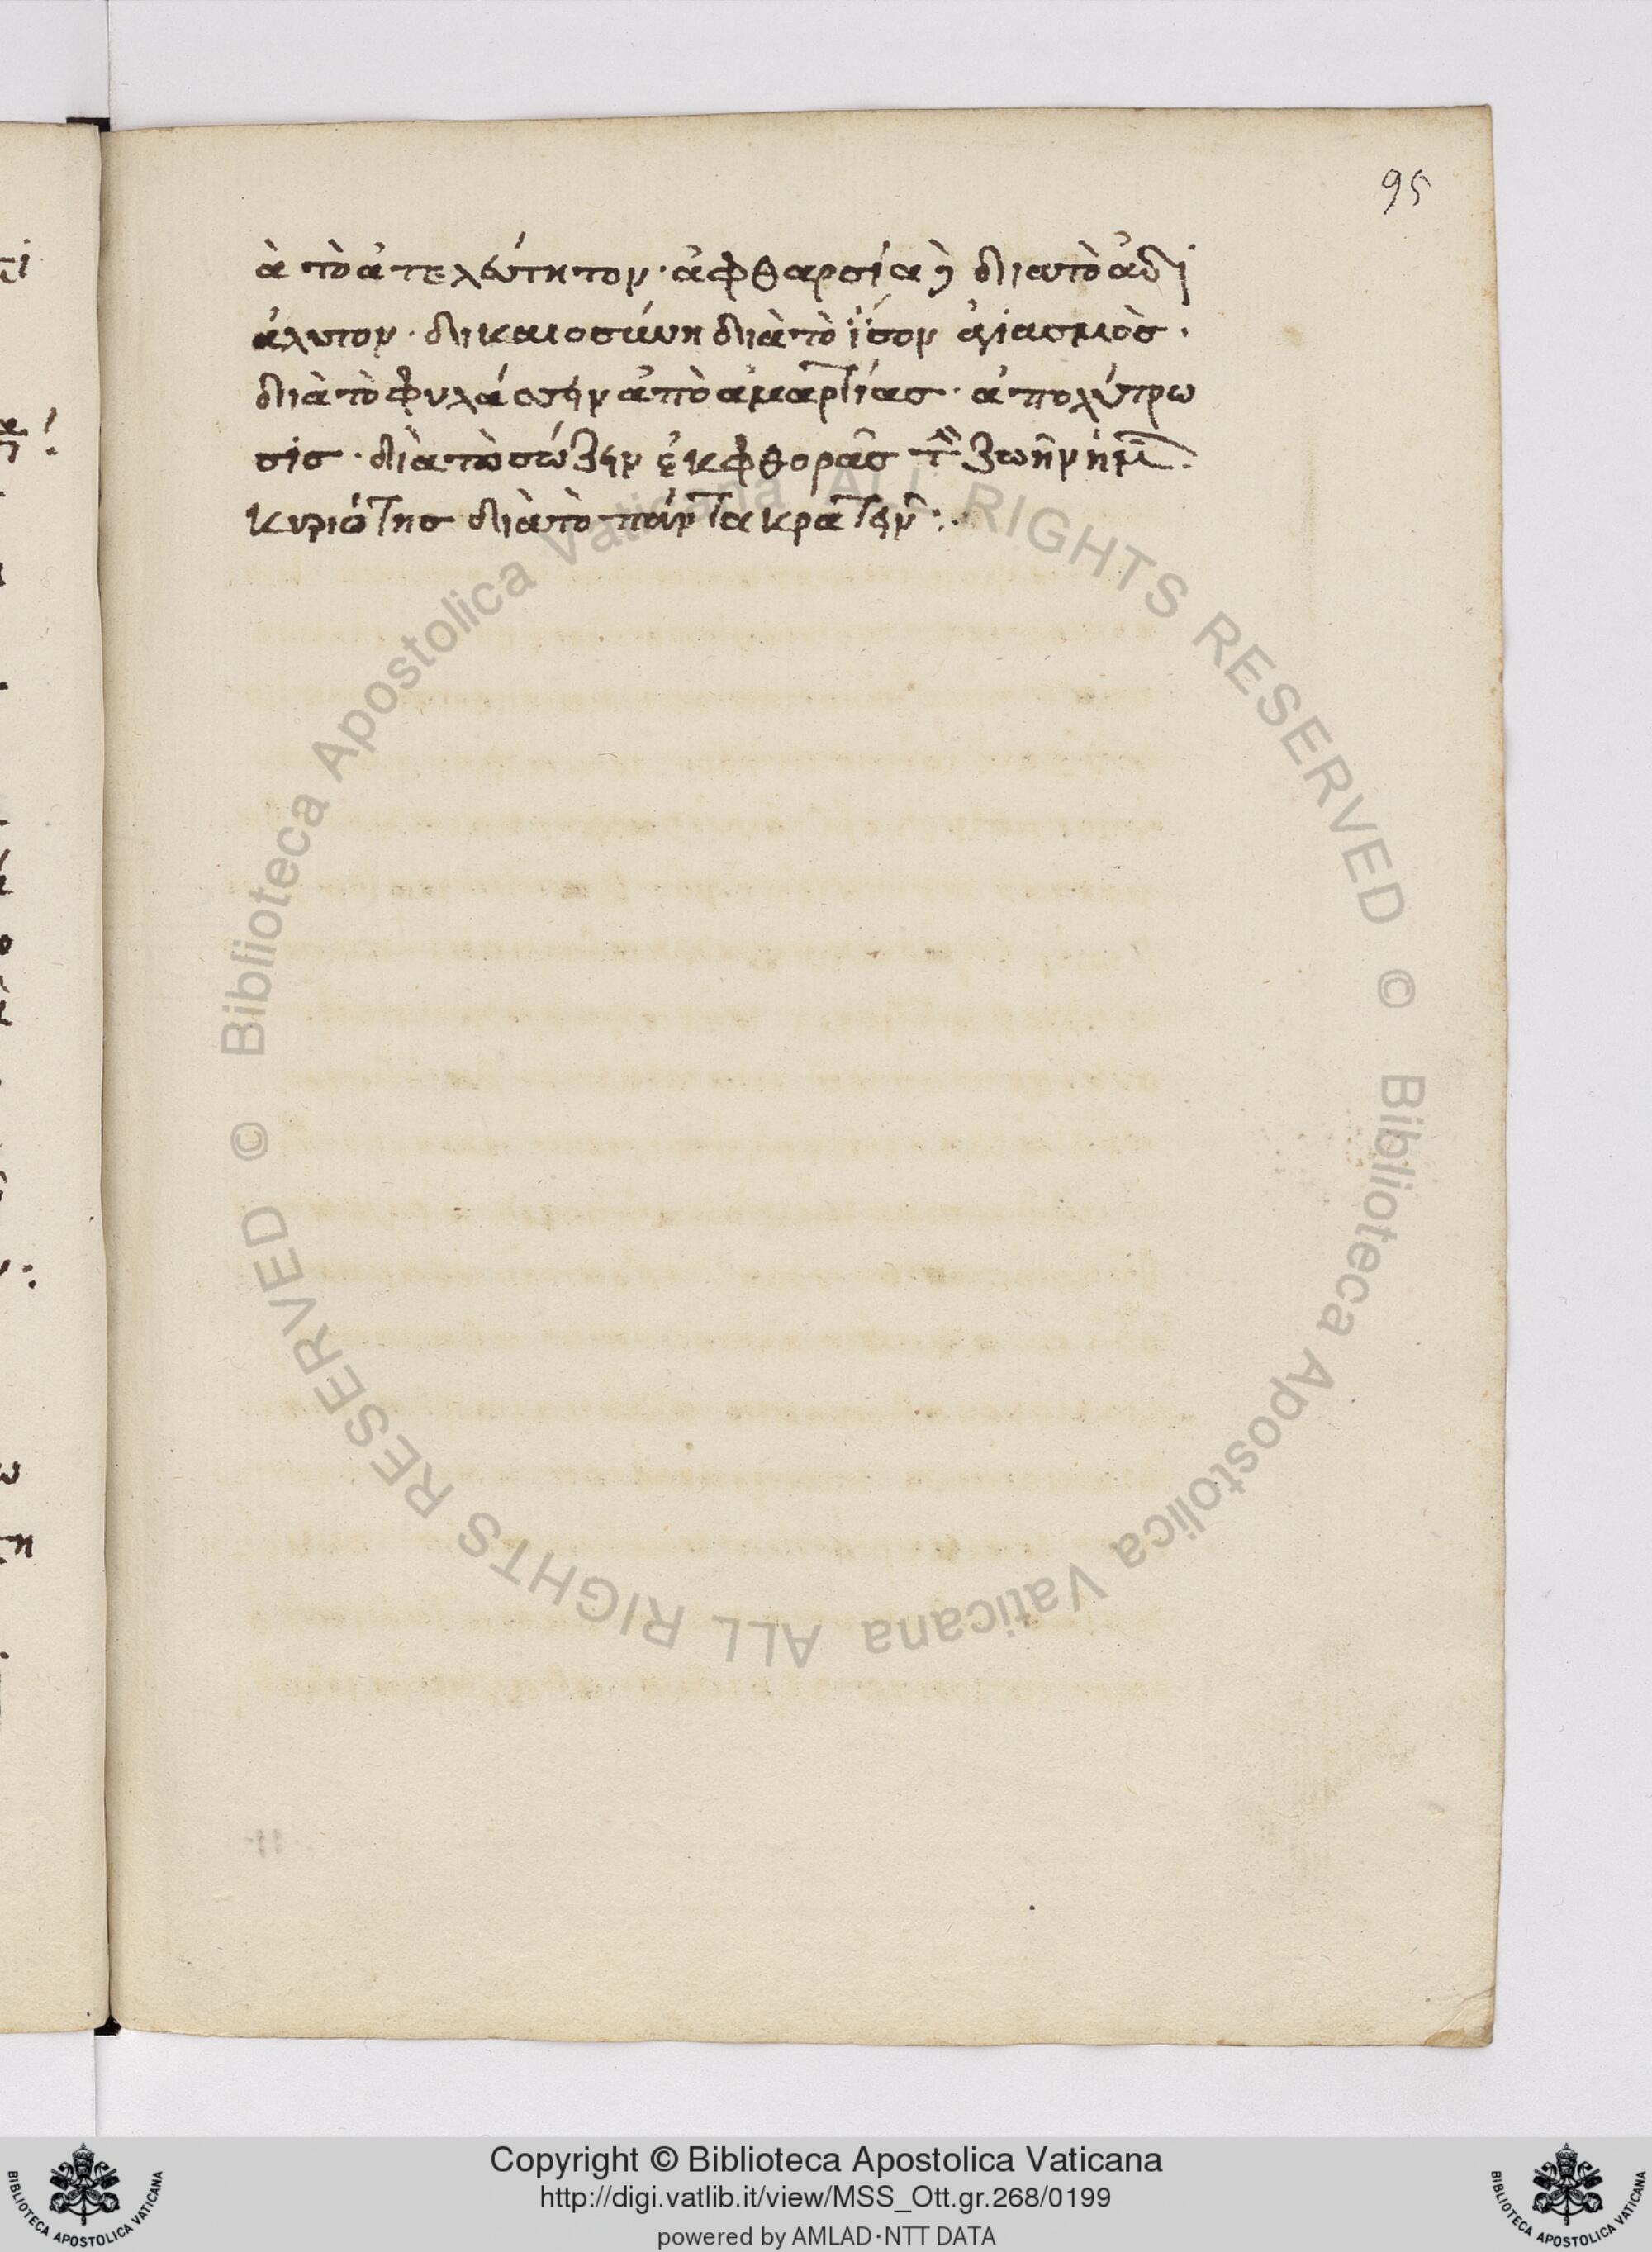 95
ὰ τὸ ἀτελεύτητον· ἀφθαρσία δὲ διατὸ ἀδι
άλυτον· δικαιοσύνη διὰ τὸ ἴσον ἁγιασμὸσ·
διὰ τὸ φυλάσσειν ἀπὸ ἁμαρτίασ· ἀπολύτρω
σισ· διὰ τὸ σώζειν ἐκ φθορᾶσ τ ζωὴν ἡμ·
κυριότησ διὰ τὸ πάντα κρατεῖν:·
© Biblioteca Apostolica Vaticana ALL RIGHTS RESERVED © Biblioteca Apostolica Vaticana ALL RIGHTS RESERVED
Copyright © Biblioteca Apostolica Vaticana
http://digi.vatlib.it/view/MSS_Ott.gr.268/0199
powered by AMLAD·NTT DATA
BIBLIOTECA APOSTOLICA VATICANA
BIBLIOTECA APOSTOLICA VATICANA